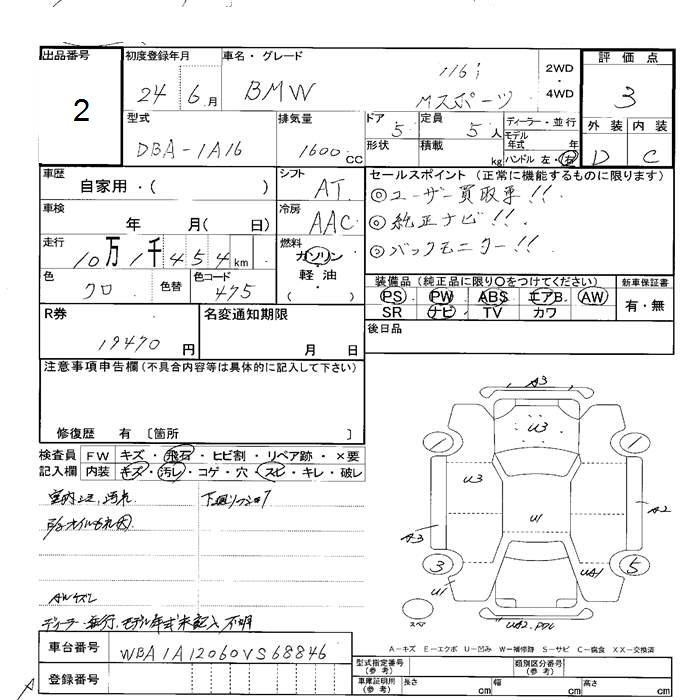 出品番号 初度登録年月 車名・グレード 評価点
2 24 6月 BMW 116i Mスポーツ 2WD・4WD 3
型式 排気量 ドア 5 定員 5人 ディーラー・並行 外装 内装
DBA-1A16 1600CC 形状 積載 kg モデル年式 年 ハンドル 左・右 D C
車歴 シフト セールスポイント (正常に機能するものに限ります)
自家用・( ) AT ◎ユーザー買取車!!
車検 年 月( 日) 冷房 AAC ◎純正ナビ!!
走行 10万1千454km 燃料 ガソリン 軽油 ( ) ◎バックモニター!!
色 クロ 色替 色コード 475
装備品(純正品に限り○をつけてください) 新車保証書
PS PW ABS エアB AW 有・無
SR ナビ TV カワ
R券 19470円 名変通知期限 月 日 後日品
注意事項申告欄(不具合内容等は具体的に記入して下さい)
修復歴 有 〔箇所 〕
検査員記入欄 FW キズ・飛石・ヒビ割・リペア跡・×要
内装 キズ・汚レ・コゲ・穴・スレ・キレ・破レ
室内シミ、汚れ 下廻りサビ
オイルもれ
AWキズ
ディーラー・並行、モデル年式未記入 不明
A3
U3
U3
U1
A3
A2
1
1
3
5
U1
UA1
スペア
A-キズ E-エクボ U-凹み W-補修跡 S-サビ C-腐食 XX-交換済
車台番号 WBA1A12060VS68846
登録番号
型式指定番号(参考) 類別区分番号(参考)
車庫証明用(参考) 長さ cm 幅 cm 高さ cm